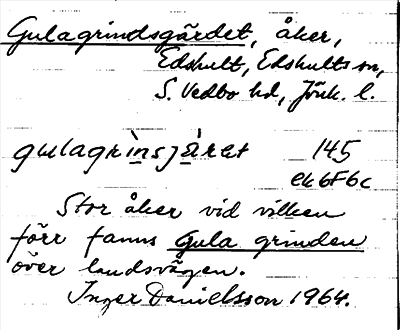 Gulagrindsgärdet, åker,
Edshult, Edshults sn,
S. Vedbo hd, Jönk. l.
gulagrìnsjàret 145
ek 6F6c
Stor åker vid vilken
förr fanns Gula grinden
över landsvägen.
Inger Danielsson 1964.